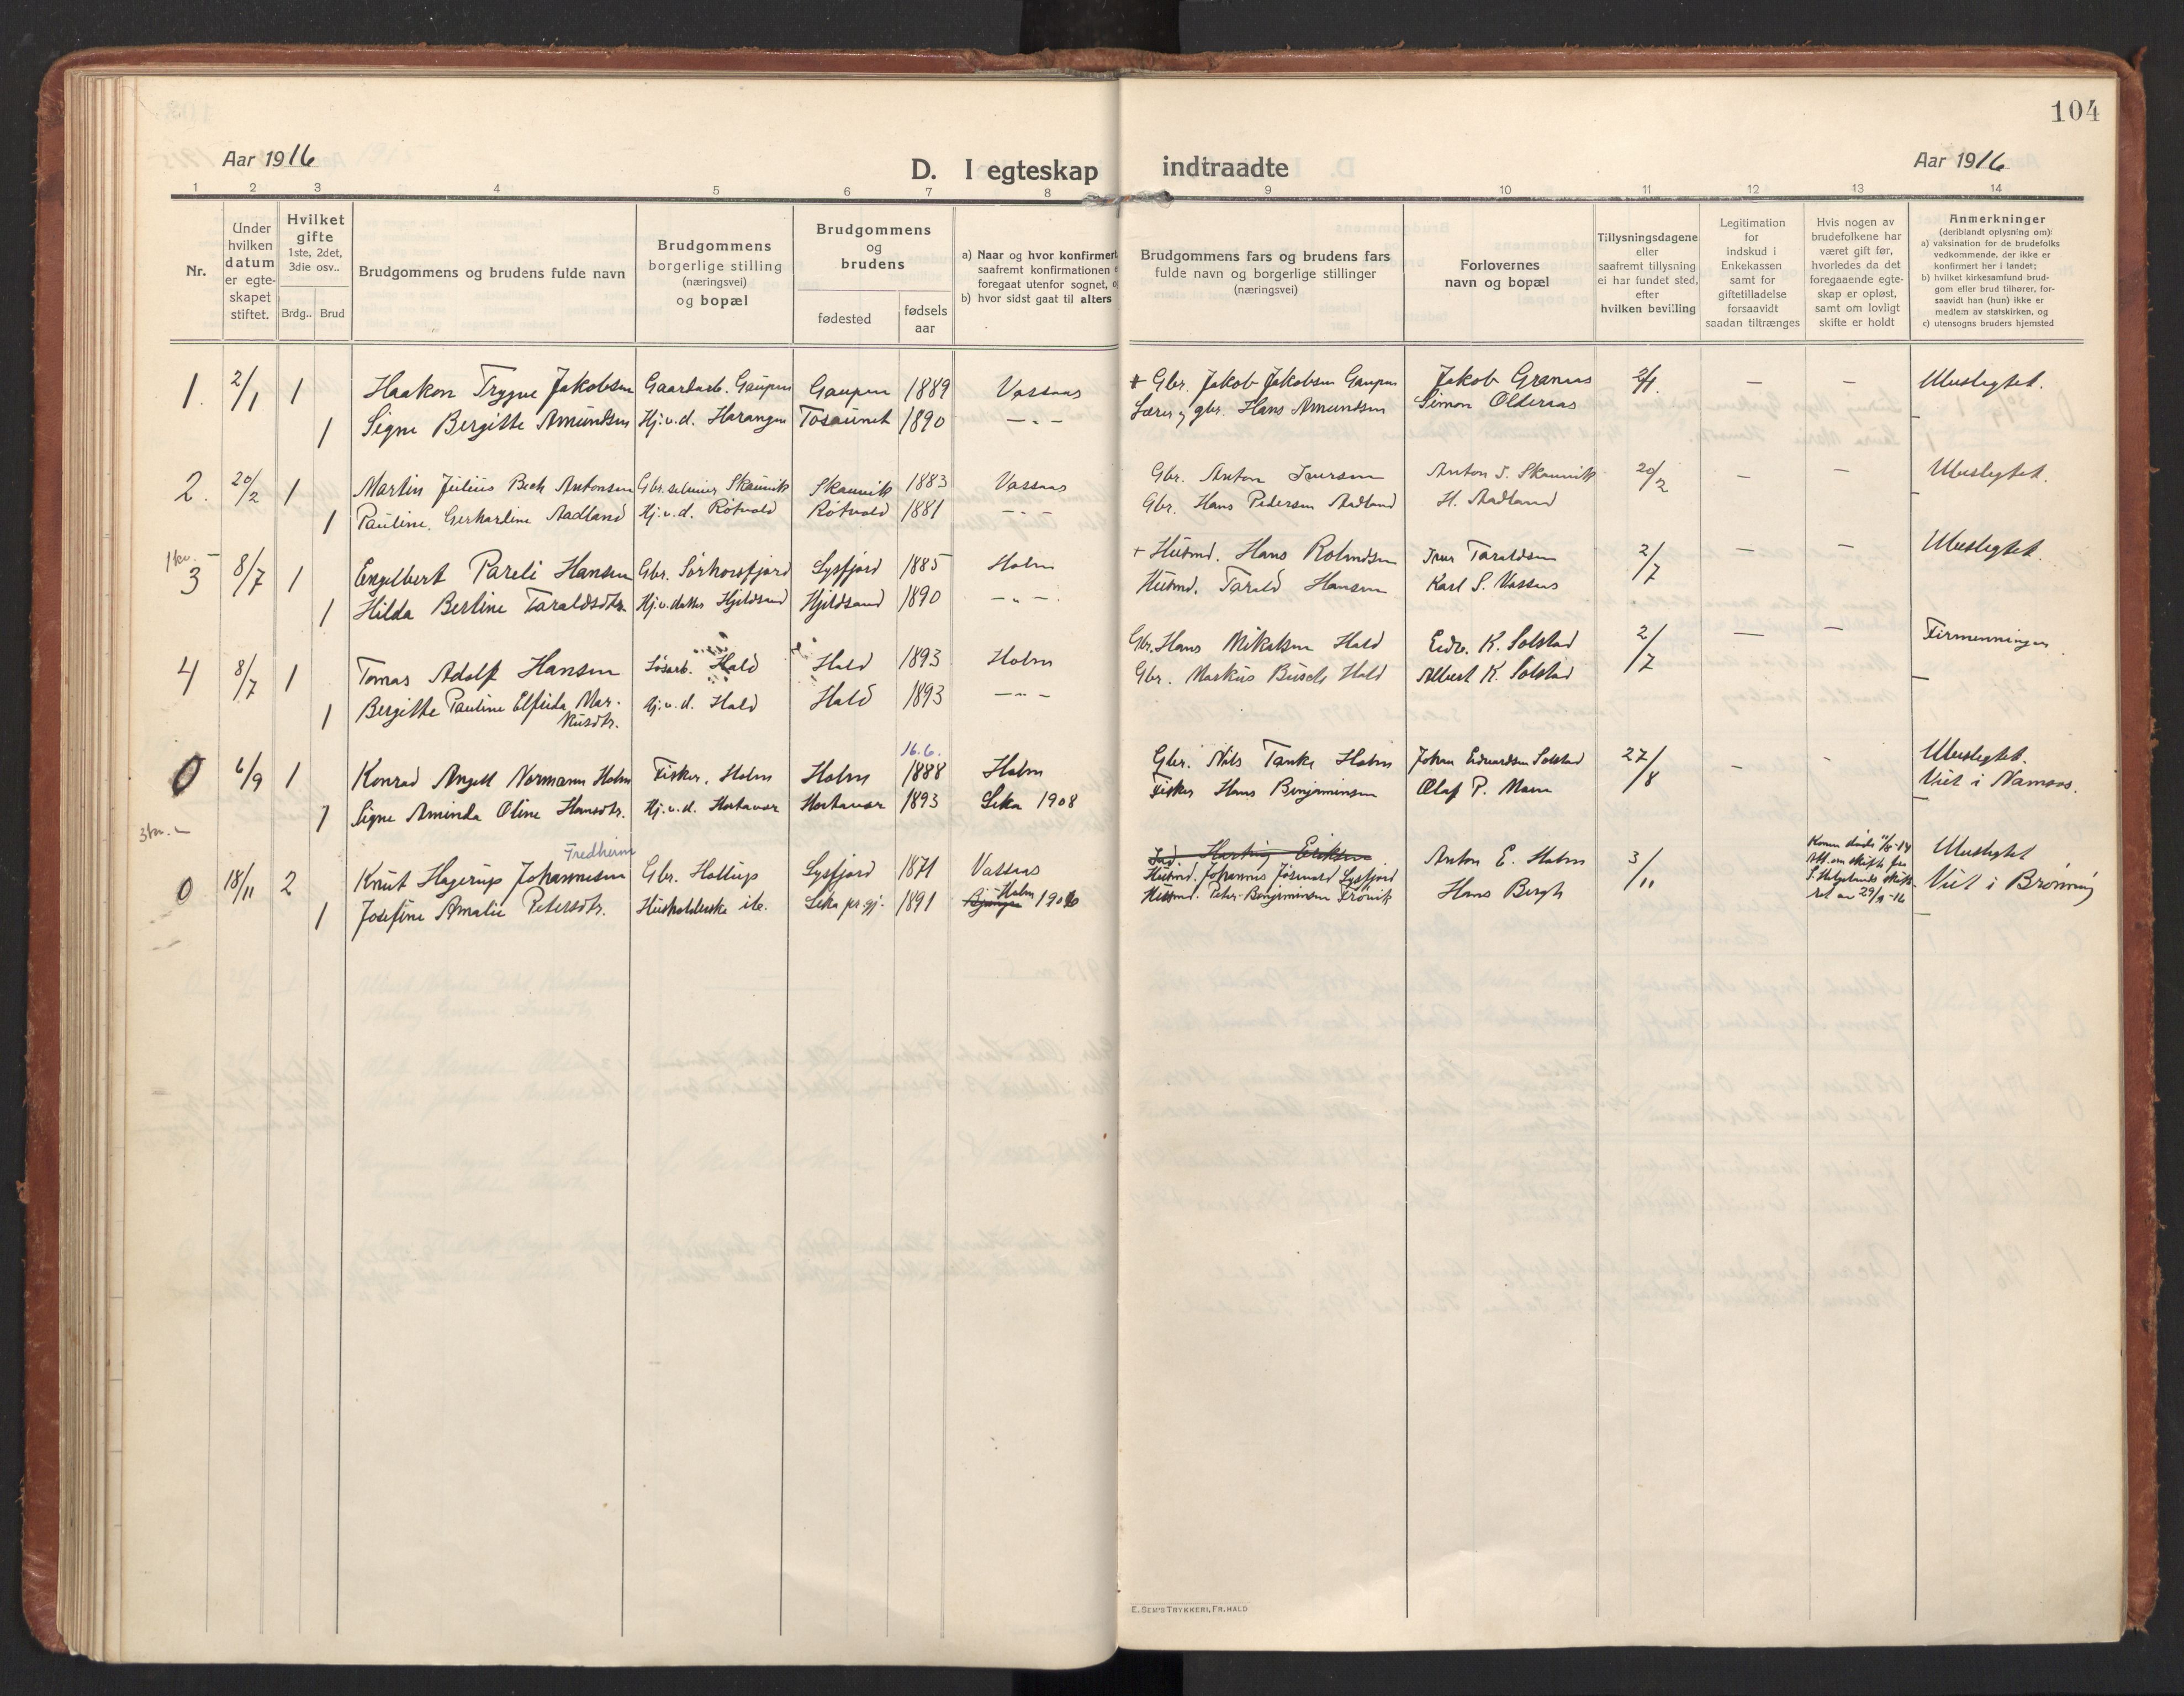 104
Aar 1916
D. I egteskap indtraadte
Aar 1916
1 2 3 4 5 6 7 8 9 10 11 12 13 14
Nr.
Under
hvilken
datum
er egte-
skapet
stiftet.
Hvilket
gifte
1ste, 2det,
3die osv..
Brdg.. Brud
Brudgommens og brudens fulde navn
Brudgommens
borgerlige stilling
(næringsvei)
og bopæl
Brudgommens
og
brudens
fødested
fødsels
aar
a) Naar og hvor konfirmert
saafremt konfirmationen
foregaat utenfor sognet,
b) hvor sidst gaat til alters
Brudgommens fars og brudens fars
fulde navn og borgerlige stillinger
(næringsvei)
Forlovernes
navn og bopæl
Tillysningsdagene
eller
saafremt tillysning
ei har fundet sted,
efter
hvilken bevilling
Legitimation
for
indskud i
Enkekassen
samt for
giftetilladelse
forsaavidt
saadan tiltrænges
Hvis nogen av
brudefolkene har
været gift før,
hvorledes da det
foregaaende egte-
skap er opløst,
samt om lovligt
skifte er holdt
Anmerkninger
(deriblandt oplysning om):
a) vaksination for de brudefolks
vedkommende, der ikke er
konfirmert her i landet;
b) hvilket kirkesamfund brud-
gom eller brud tilhører, for-
saavidt han (hun) ikke er
medlem av statskirken, og
c) utensogns bruders hjemsted
1. 2/1 1 Haakon Trygve Jakobsen Gaardarb. Gaupen Gaupen 1889 Vassaas + Gbr. Jakob Jakobsen Gaupen Jakob Granaas 2/1. — — Ubeslegtet.
1 Signe Bergitte Amundsen Hj.v.d. Harangen Tosaunet 1890 — " — Lærer og gbr. Hans Amundsen Simon Olderaas
2. 20/2 1 Martin Julius Bech Antonsen Gbr. Skaunvik Skaunvik 1883 Vassaas Gbr. Anton Iversen Anton I. Skaunvik 20/2 — — Ubeslegtet.
1 Pauline Gerhardine Aadland Hj.v.d. Røtvold Røtvold 1881 — " — Gbr. Hans Pedersen Aadland H. Aadland
3 8/7 1 Engelbert Pareli Hansen Gbr. Sørhorsfjord Lysfjord 1885 Holm + Husmd. Hans Rolandsen Iver Taraldsen 2/7 — — Ubeslegtet.
1 Hilda Berline Taraldsdtr. Hj.v. datter Hjeldsand Hjeldsand 1890 — " — Husmd. Tarald Hansen Karl S. Vassaas
4 8/7 1 Tomas Adolf Hansen Løsarb. Hald Hald 1893 Holm Gbr. Hans Mikalsen Hald Edv. K. Solstad 2/7 — — Firmenninger.
1 Bergitte Pauline Elfrida Mar-
kusdtr. Hj.v.d. Hald Hald 1893 — " — Gbr. Markus Busch Hald Albert K. Solstad
16.6.
0 6/9 1 Konrad Angell Normann Holm Fisker, Holm Holm 1888 Holm Gbr. Nils Tanke Holm Johan Edvardsen Solstad 27/8 — - Ubeslegtet.
Viet i Namsos.
1 Signe Aminda Oline Hansdtr. Hj.v.d. Hortavær Hortavær 1893 Leka 1908 Fisker Hans Benjaminsen Olaf P. Moen
Fredheim
0 18/11 2 Knut Hagerup Johannesen Gbr. Hollup Lysfjord 1871 Vassaas Hartvig Eriksen
Husmd. Johannes Lysfjord Anton E. Holm 3/11 Ubeslegtet
Viet i Brønnøy
1 Josefine Amalie Petersdtr. Husholderske ib. Leka pr.gj. 1891 Holm 1906 Husmd. Peter Benjaminsen Hans Bergh
E. SEM'S TRYKKERI, FR. HALD